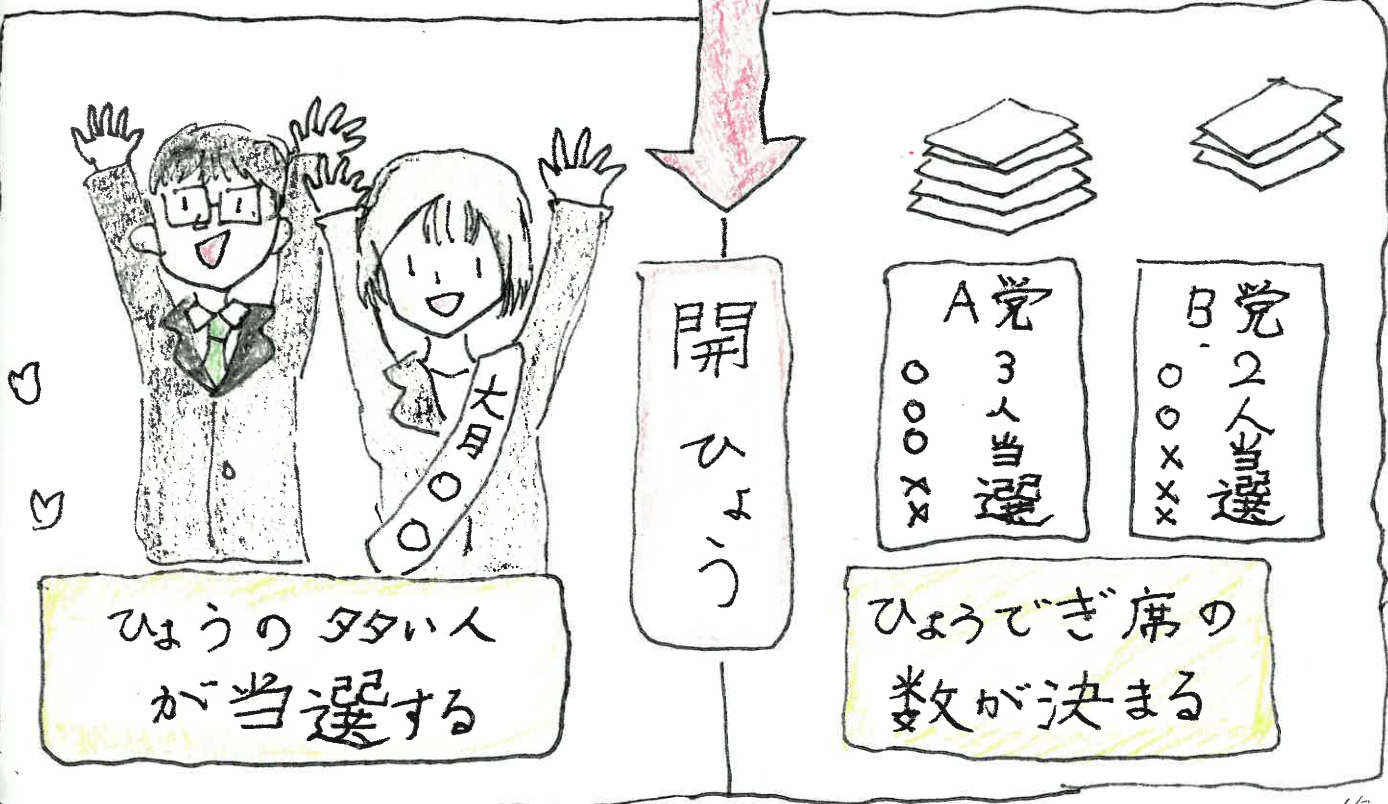 大月〇〇
ひょうの多い人
が当選する
開ひょう
A党
○ 3
○ 人
○ 当
× 選
×
B党
○ 2
○ 人
× 当
× 選
×
ひょうでぎ席の
数が決まる